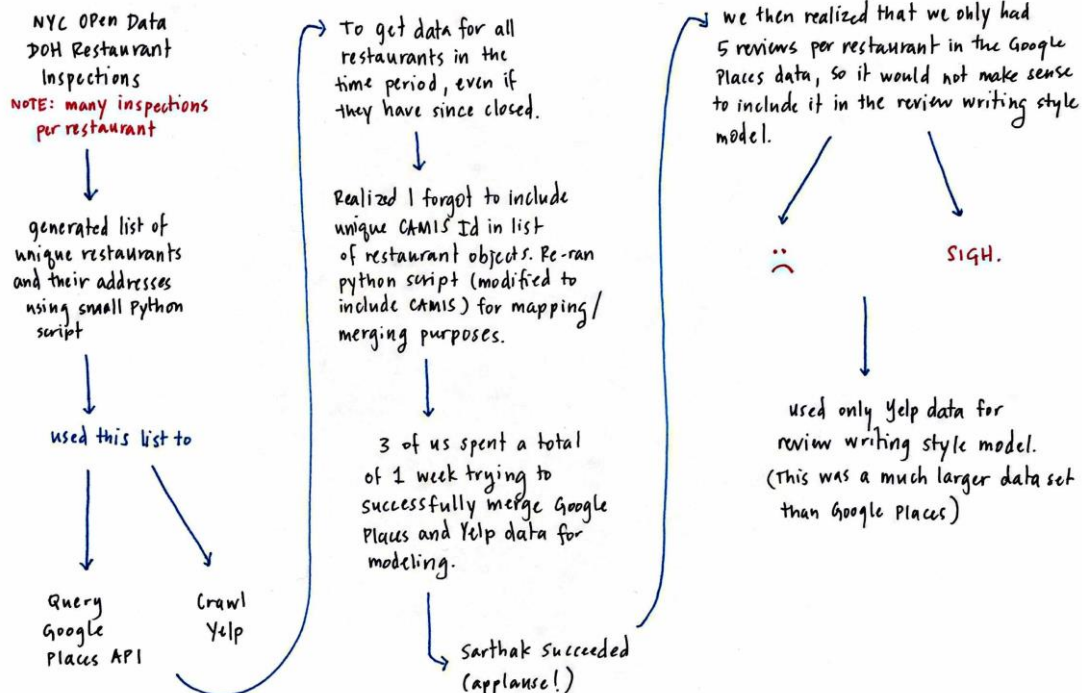 NYC OPen Data
DOH Restaurant
Inspections
NOTE: many inspections
per restaurant
generated list of
unique restaurants
and their addresses
using small Python
script
used this list to
Query
Google
Places API
Crawl
Yelp
To get data for all
restaurants in the
time period, even if
they have since closed.
Realized I forgot to include
unique CAMIS Id in list
of restaurant objects. Re-ran
python script (modified to
include CAMIS) for mapping/
merging purposes.
3 of us spent a total
of 1 week trying to
successfully merge Google
Places and Yelp data for
modeling.
Sarthak succeeded
(applause!)
we then realized that we only had
5 reviews per restaurant in the Google
Places data, so it would not make sense
to include it in the review writing style
model.
SIGH.
used only Yelp data for
review writing style model.
(This was a much larger data set
than Google Places)